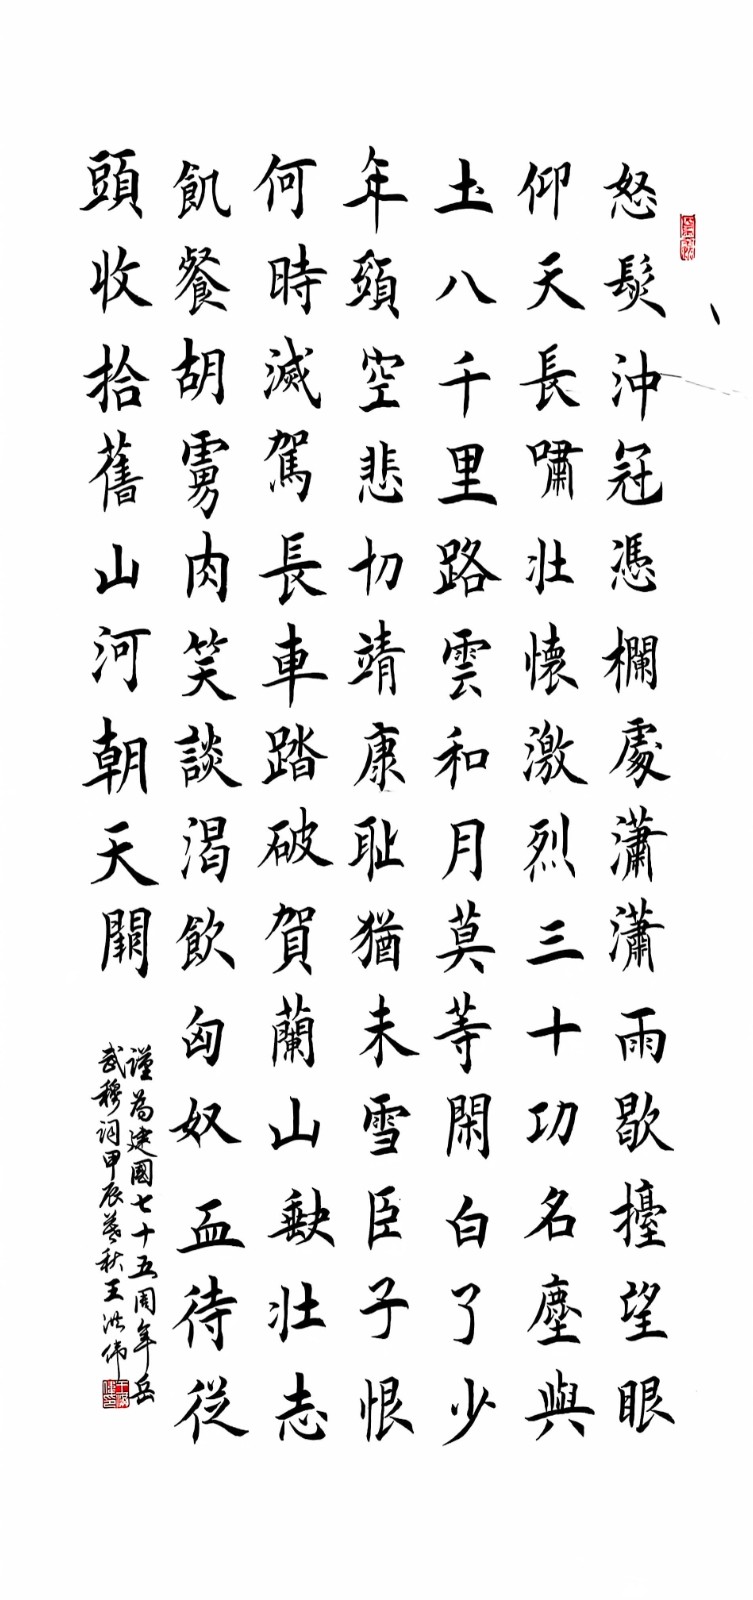 怒髮沖冠憑欄處瀟瀟雨歇擡望眼
仰天長嘯壯懷激烈三十功名塵與
土八千里路雲和月莫等閑白了少
年頭空悲切靖康耻猶未雪臣子恨
何時滅駕長車踏破賀蘭山缺壯志
飢餐胡虜肉笑談渴飲匈奴血待從
頭收拾舊山河朝天闕
謹為建國七十五周年岳
武穆詞甲辰暮秋王洪伟